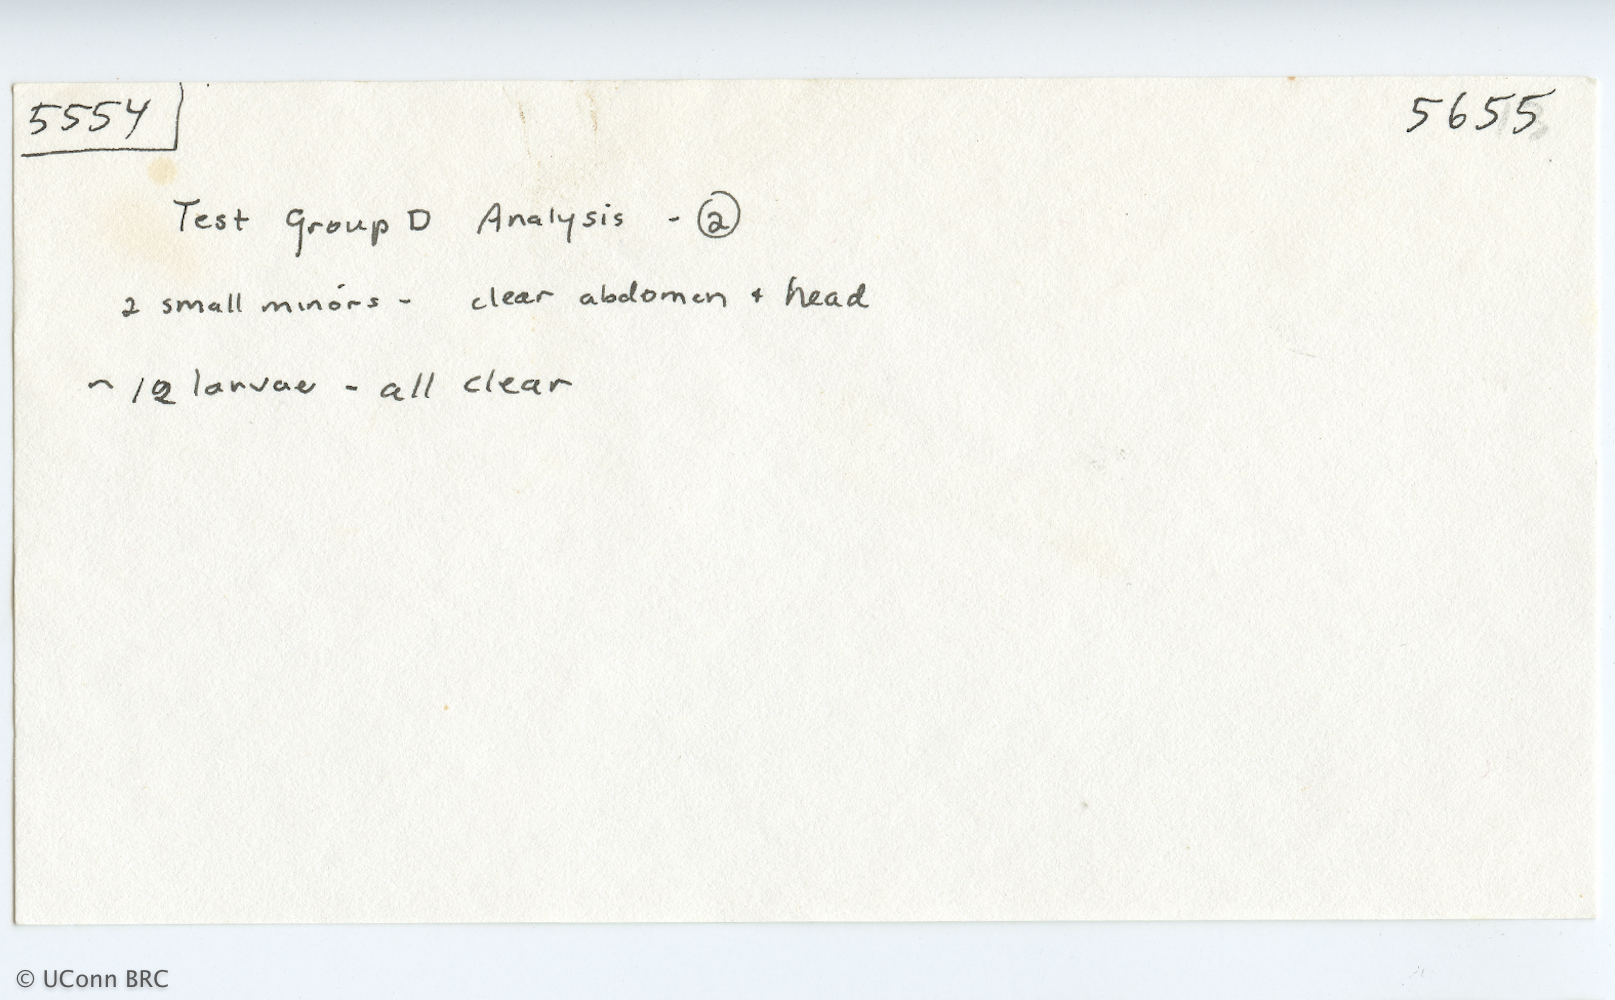 5554
5655
Test Group D Analysis - ②
2 small minors - clear abdomen + head
~ 12 larvae - all clear
© UConn BRC